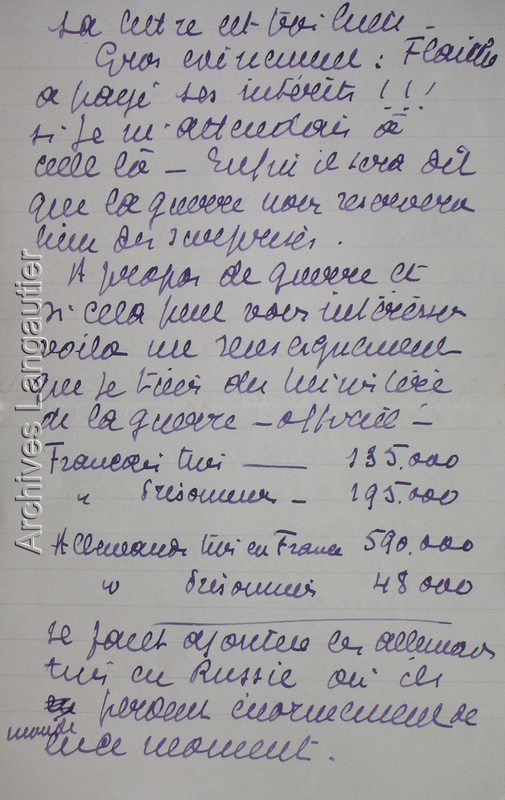 La lettre est bien
Gros évènement : Flaitre
a payé ses intérêts ! ! !
si je m'attendais à
celle là – Enfin il sera dit
que la guerre nous réservera
bien des surprises.
A propos de guerre et
si cela peut vous intéresser
voila un renseignement
que je tiens du ministère
de la guerre – officiel –
Français tués —— 135.000
" Prisonniers – 195.000
Allemands tués en France 590.000
" Prisonniers 48 000
Il faut ajouter les allemands
tués en Russie où ils
perdent énormément de
monde en ce moment.
Archives Langautier